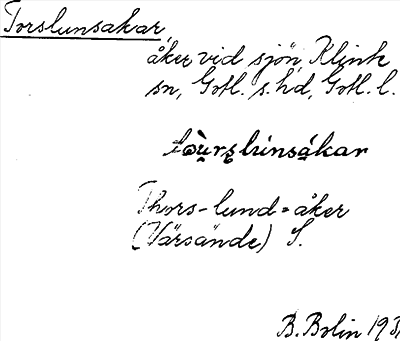 Torslunsakar,
åker vid sjön, Klinte
sn, Gotl. s. hd, Gotl. l.
Thors-lund-åker
(Värsände) S.
B. Bolin 193